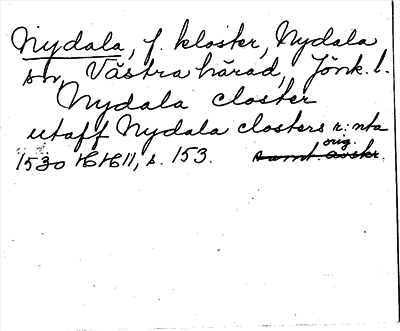 Nydala, f. kloster, Nydala
sn, Västra härad, Jönk. l.
Nydala closter
utaff Nydala closters r:nta
orig.
1530 HH II, s. 153. samt avskr.